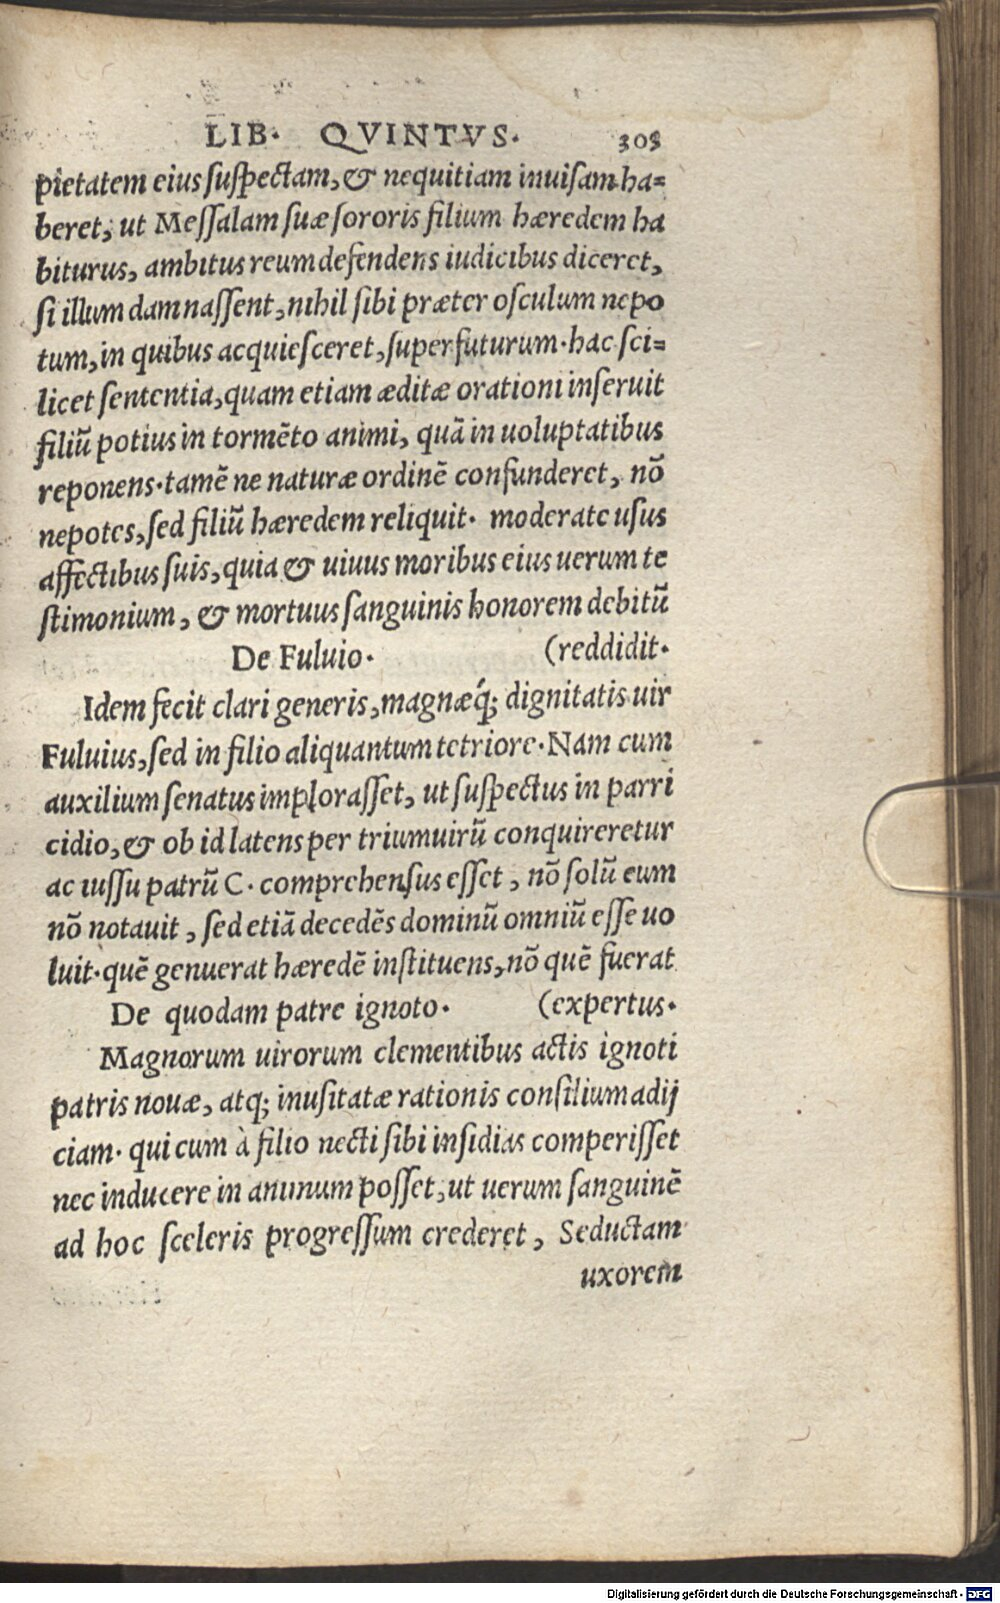 LIB. QVINTVS. 303
pietatem eius suspectam, & nequitiam inuisam ha=
beret, ut Messalam suæ sororis filium hæredem ha
biturus, ambitus reum defendens iudicibus diceret,
si illum damnassent, nihil sibi præter osculum nepo
tum, in quibus acquiesceret, superfuturum. hac sci=
licet sententia, quam etiam æditæ orationi inseruit
filiū potius in tormēto animi, quā in uoluptatibus
reponens. tamē ne naturæ ordinē confunderet, nō
nepotes, sed filiū hæredem reliquit. moderate usus
affectibus suis, quia & uiuus moribus eius uerum te
stimonium, & mortuus sanguinis honorem debitū
De Fuluio. (reddidit.
Idem fecit clari generis, magnæq́; dignitatis uir
Fuluius, sed in filio aliquantum tetriore. Nam cum
auxilium senatus implorasset, ut suspectus in parri
cidio, & ob id latens per triumuirū conquireretur
ac iussu patrū C. comprehensus esset, nō solū eum
nō notauit, sed etiā decedēs dominū omniū esse uo
luit. quē genuerat hæredē instituens, nō quē fuerat
De quodam patre ignoto. (expertus.
Magnorum uirorum clementibus actis ignoti
patris nouæ, atq; inusitatæ rationis consilium adij
ciam. qui cum à filio necti sibi insidias comperisset
nec inducere in animum posset, ut uerum sanguinē
ad hoc sceleris progressum crederet, Seductam
uxorem
Digitalisierung gefördert durch die Deutsche Forschungsgemeinschaft - DFG